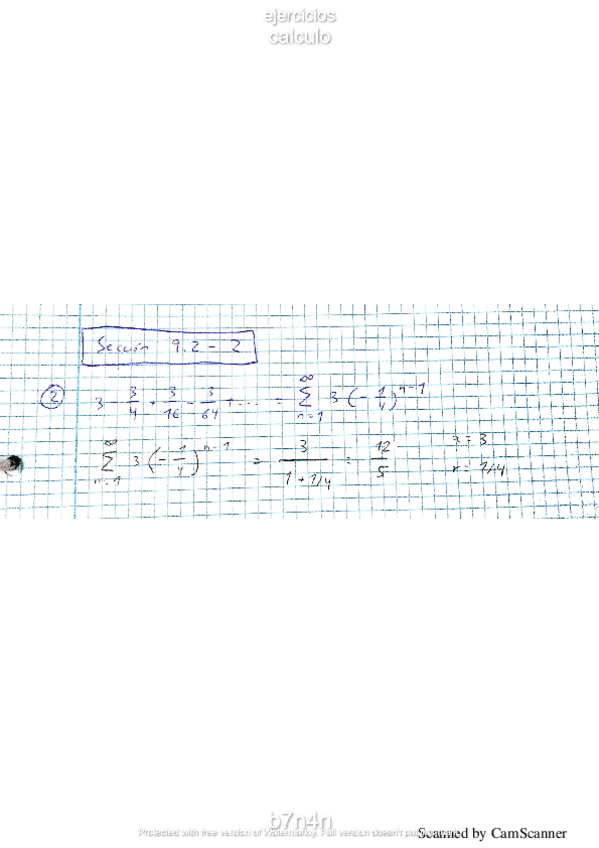 ejercicios
calculo
Sección 9.2 - 2
② 3 - 3/4 + 3/16 - 3/64 + ... = ∑_{n=1}^{∞} 3 (-1/4)^{n-1}
∑_{n=1}^{∞} 3 (-1/4)^{n-1} = 3/(1 + 1/4) = 12/5
a = 3
r = 1/4
b7n4n
Protected with free version of Watermarkly. Full version doesn't put
Scanned by CamScanner